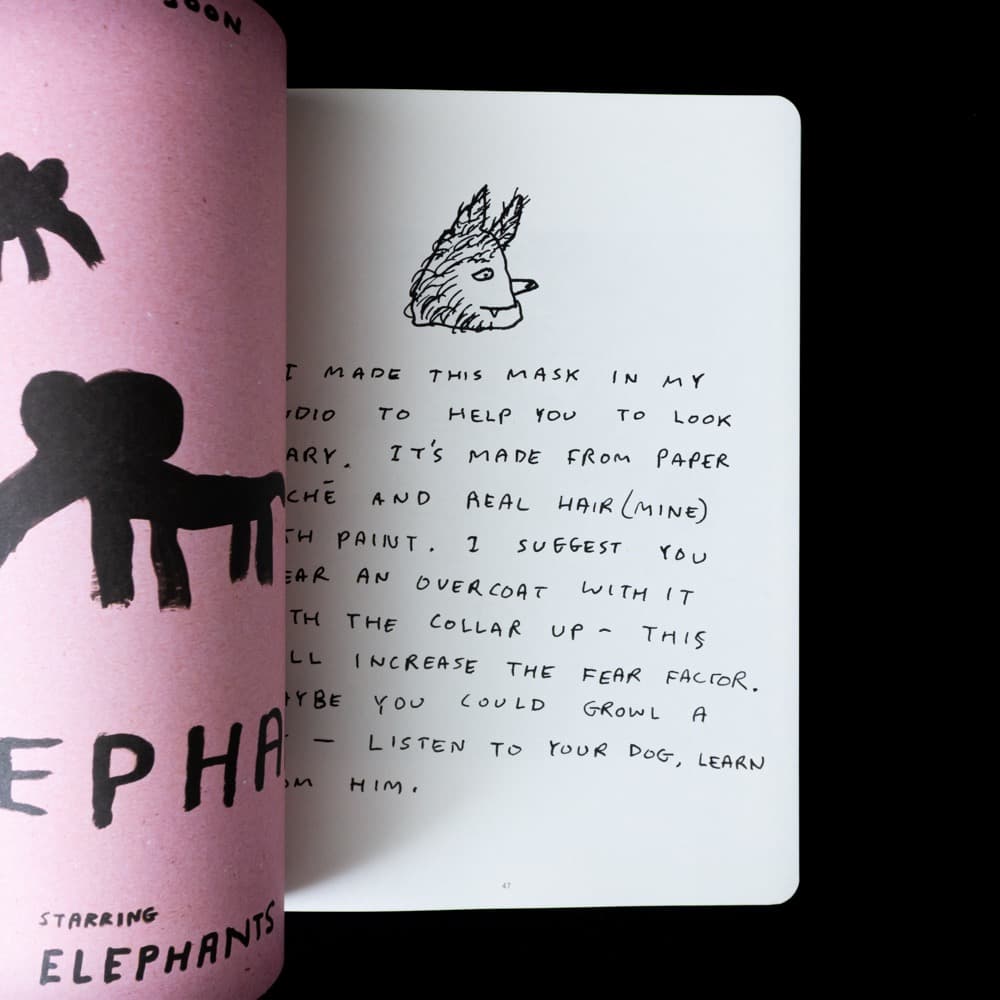 SOON
EPHA
STARRING
ELEPHANTS
I MADE THIS MASK IN MY
UDIO TO HELP YOU TO LOOK
ARY. IT'S MADE FROM PAPER
CHĒ AND REAL HAIR (MINE)
TH PAINT. I SUGGEST YOU
EAR AN OVERCOAT WITH IT
TH THE COLLAR UP - THIS
LL INCREASE THE FEAR FACTOR.
AYBE YOU COULD GROWL A
— LISTEN TO YOUR DOG, LEARN
OM HIM.
47